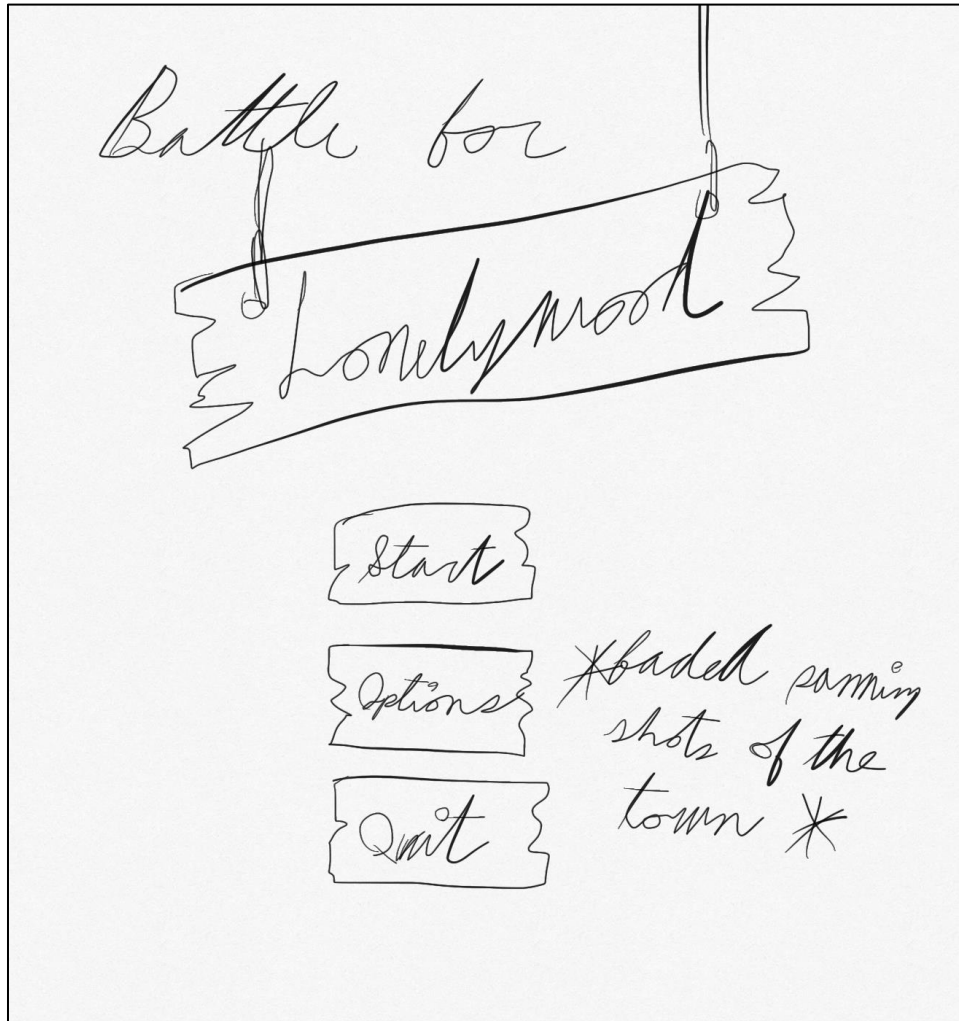 Battle for
Lonelywood
Start
Options
Quit
*faded panning
shots of the
town *